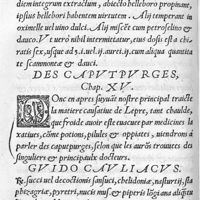 diem integrum extractum, abiecto helleboro propinant,
ipsius hellebori habentem uirtutem. Alij temperant in
oximelle uel uino dulci. Alij miscēt cum petroselino &
dauco. V uero nihil intermittatur, eius dosis est a chi-
ratis sex, usque ad .3.i.uel.ij.aurei. ij.cum aliqua quantita
te scammoneæ & dauci.
DES CAPVTPVRGES,
Chap. XV.
Onc em apres suyuāt nostre principal tracte
la matiere causatiue de Lepre, tant chaulde,
que froide auoir este euacuee par medicines la
xatiues, cōme potions, pilules & oppiates, uiendrons à
parler des caputpurges, selon que les auōs trouuees des
singuliers & principaulx docteurs.
GVIDO CAVLIACVS.
℞.succi uel decoctionis sansuci, chelidoniæ, nasturtij, sta
phizagriæ, pyretri, nucis mus. & piperis lōgi ana aliquā